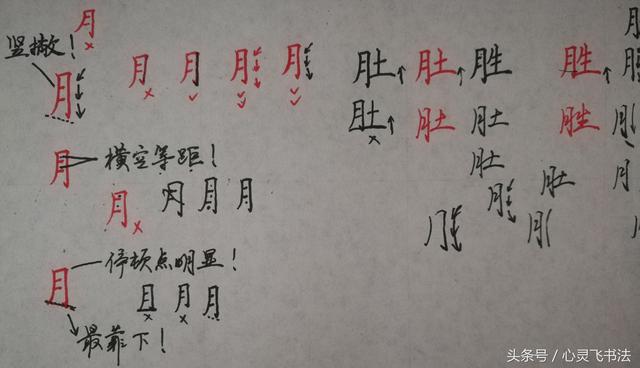 月
竖撇！
月
月 月 月 月
月
横空等距！
月
月 月 月
月
停顿点明显！
月 月 月
最靠下！
肚 肚 胜
肚 肚 肚
肚
月
肚
胜
胜
月
月
头条号／心灵飞书法